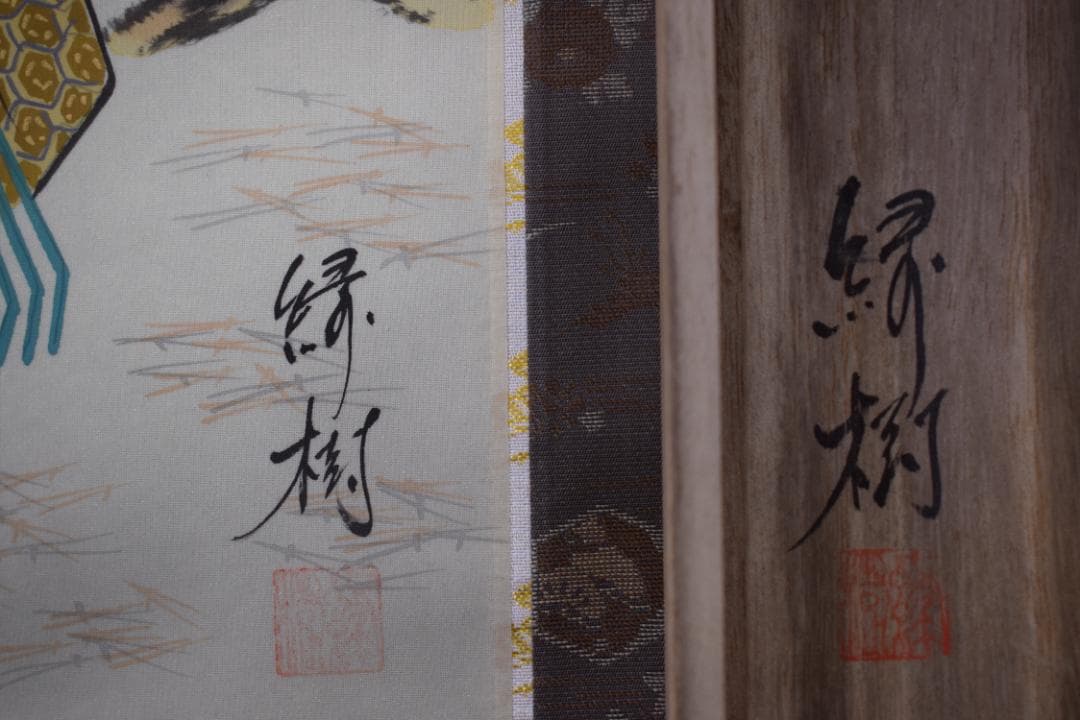 緑樹
緑樹